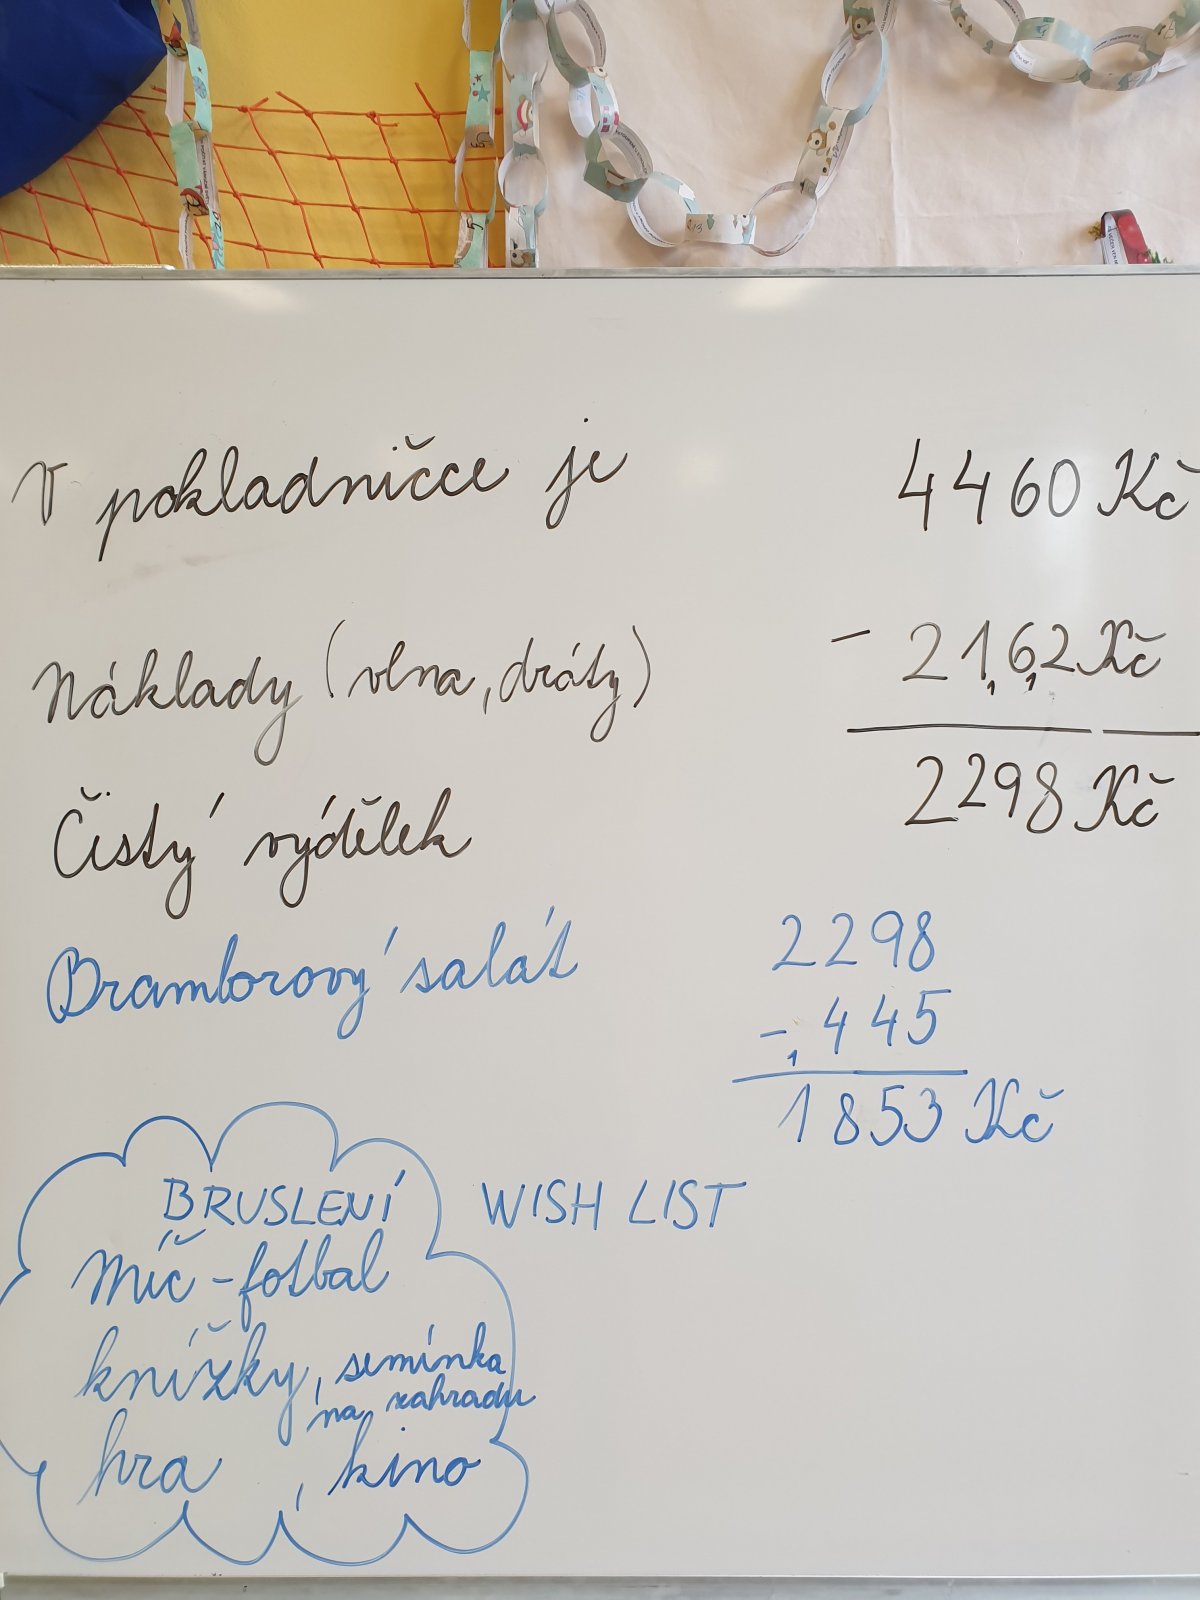 V pokladničce je 4460 Kč
Náklady (vlna, dráty) - 2162 Kč
Čistý výdělek 2298 Kč
Bramborový salát 2298
- 445
1853 Kč
BRUSLENÍ WISH LIST
Míč - fotbal
knížky, semínka
na zahradu
hra , kino